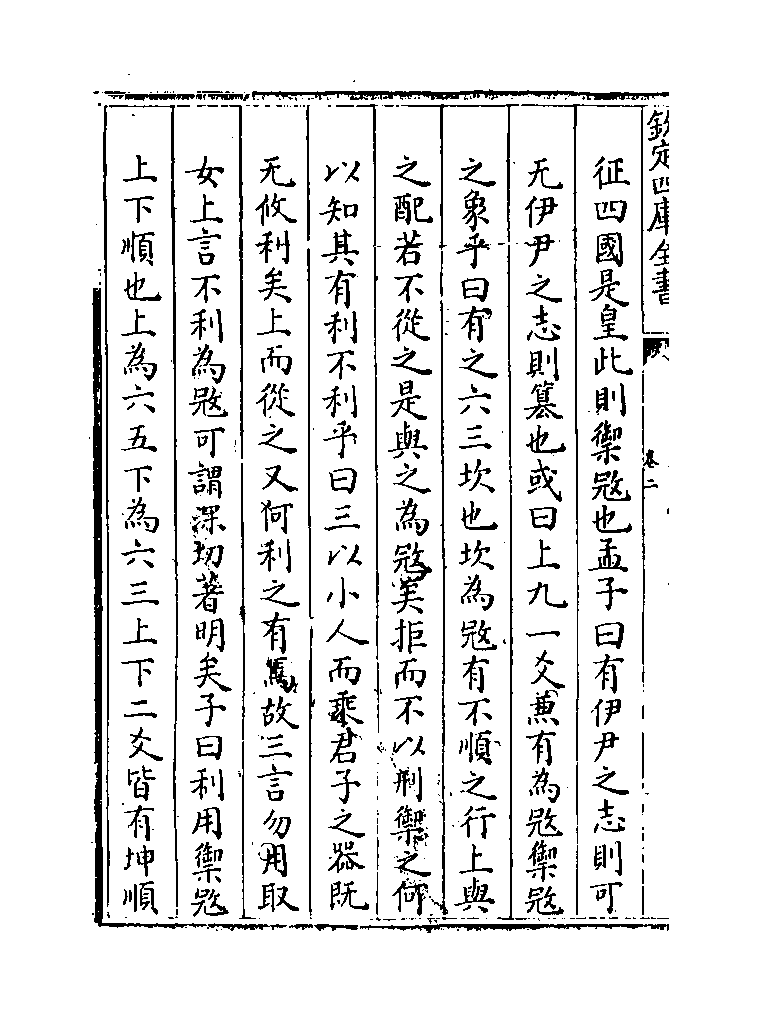 欽定四庫全書
卷二
征四國是皇此則禦㓂也孟子曰有伊尹之志則可
无伊尹之志則篡也或曰上九一爻兼有為㓂禦㓂
之象乎曰有之六三坎也坎為㓂有不順之行上與
之配若不從之是與之為㓂矣拒而不以刑禦之何
以知其有利不利乎曰三以小人而乘君子之器既
无攸利矣上而從之又何利之有焉故三言勿用取
女上言不利為㓂可謂深切著明矣子曰利用禦㓂
上下順也上為六五下為六三上下二爻皆有坤順